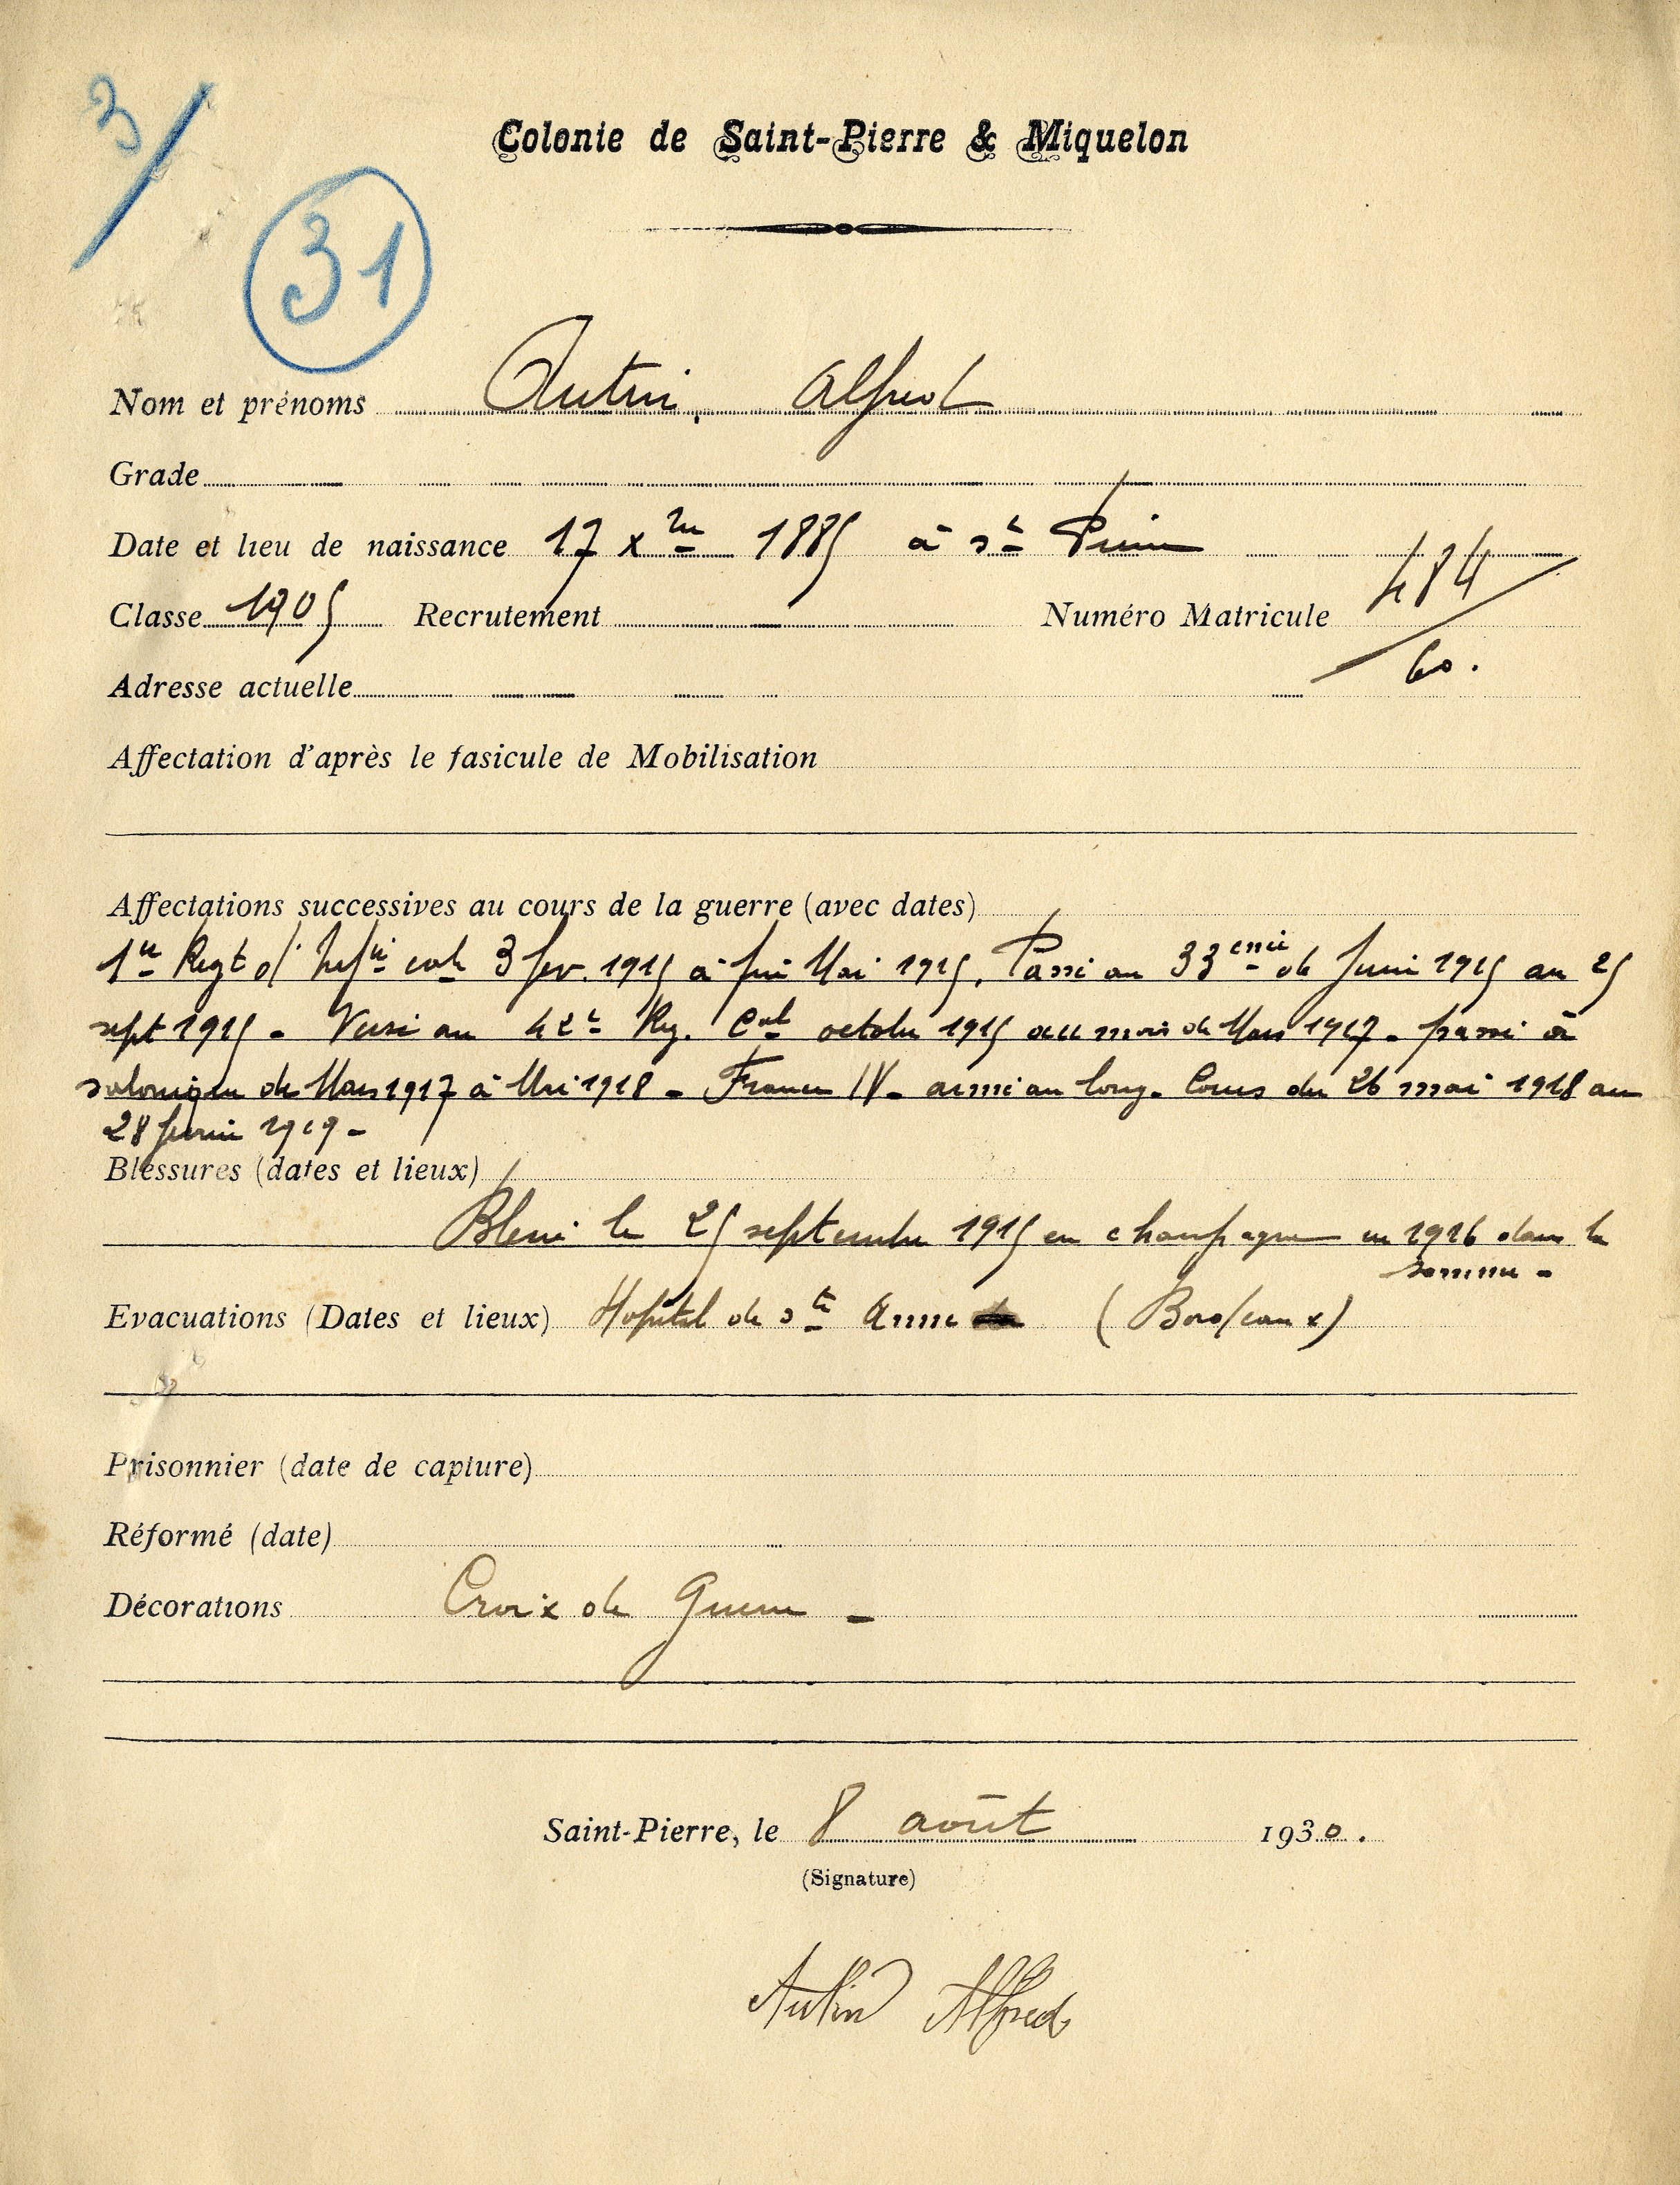 3/
31
Colonie de Saint-Pierre & Miquelon
Nom et prénoms Autin, Alfred
Grade
Date et lieu de naissance 17 xbre 1885 à St Pierre
Classe 1905 Recrutement Numéro Matricule 484/60.
Adresse actuelle
Affectation d'après le fasicule de Mobilisation
Affectations successives au cours de la guerre (avec dates)
1er Regt d'Infrie cole 3 fev. 1915 à fin Mai 1915. Passé au 33eme de Juin 1915 au 25
sept 1915 - Versé au 42e Reg. Col octobre 1915 au mois de Mars 1917 - passé à
salonique de Mars 1917 à Mai 1918 - France armé au long-Cours du 26 mai 1918 au
28 fevrier 1919 -
Blessures (dates et lieux)
Blessé le 25 septembre 1915 en champagne en 1916 dans la
somme -
Evacuations (Dates et lieux) Hopital de Ste Anne (Bordeaux)
Prisonnier (date de capture)
Réformé (date)
Décorations Croix de Guerre -
Saint-Pierre, le 8 août 1930.
(Signature)
Autin Alfred